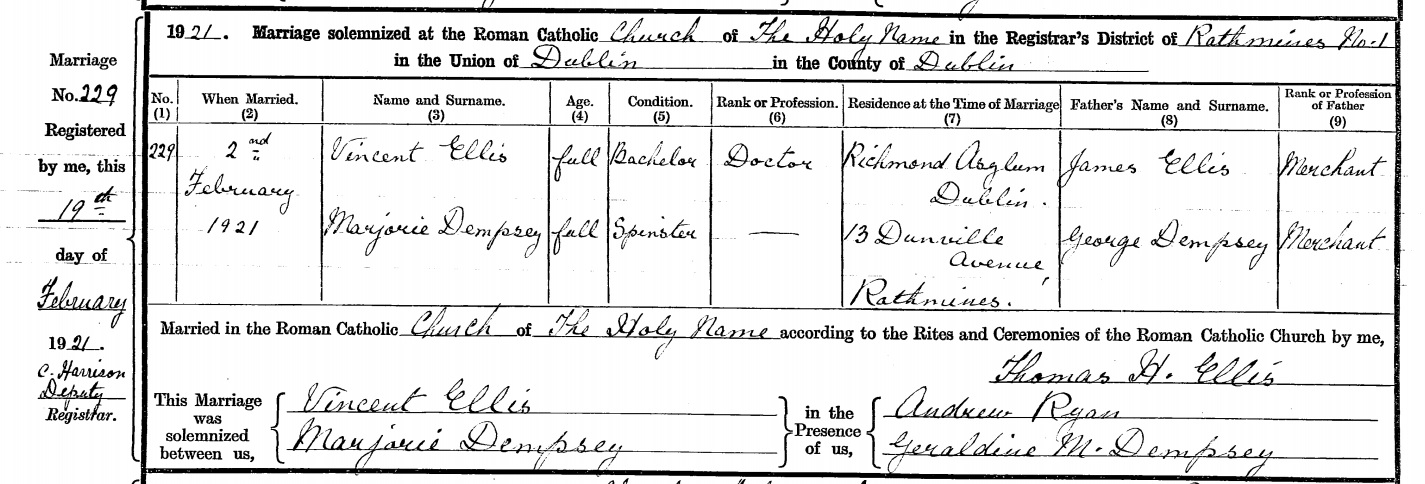 1921. Marriage solemnized at the Roman Catholic Church of The Holy Name in the Registrar's District of Rathmines No. 1
in the Union of Dublin in the County of Dublin
Marriage
No. 229
Registered
by me, this
19th
day of
February
1921.
C. Harrison
Deputy
Registrar.
No. (1) When Married. (2) Name and Surname. (3) Age. (4) Condition. (5) Rank or Profession. (6) Residence at the Time of Marriage (7) Father's Name and Surname. (8) Rank or Profession of Father (9)
229 2nd Vincent Ellis full Bachelor Doctor Richmond Asylum James Ellis Merchant
February Dublin.
1921 Marjorie Dempsey full Spinster — 13 Dunville George Dempsey Merchant
Avenue,
Rathmines.
Married in the Roman Catholic Church of The Holy Name according to the Rites and Ceremonies of the Roman Catholic Church by me,
Thomas H. Ellis
This Marriage was solemnized between us,
Vincent Ellis
Marjorie Dempsey
in the Presence of us,
Andrew Ryan
Geraldine M. Dempsey